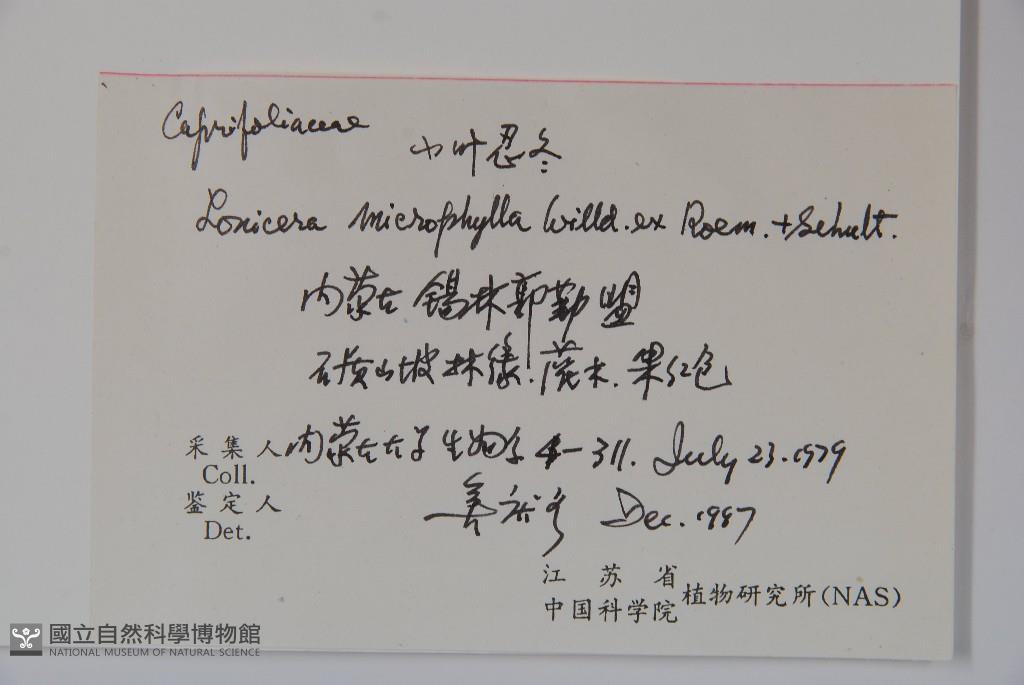 Caprifoliaceae
小叶忍冬
Lonicera microphylla Willd. ex Roem. + Schult.
内蒙古 锡林郭勒盟
石质山坡林缘. 灌木. 果红色
采集人 内蒙古大学生物系 311. July 23. 1979
Coll.
鉴定人 Dec. 1987
Det.
江苏省
中国科学院 植物研究所(NAS)
國立自然科學博物館
NATIONAL MUSEUM OF NATURAL SCIENCE